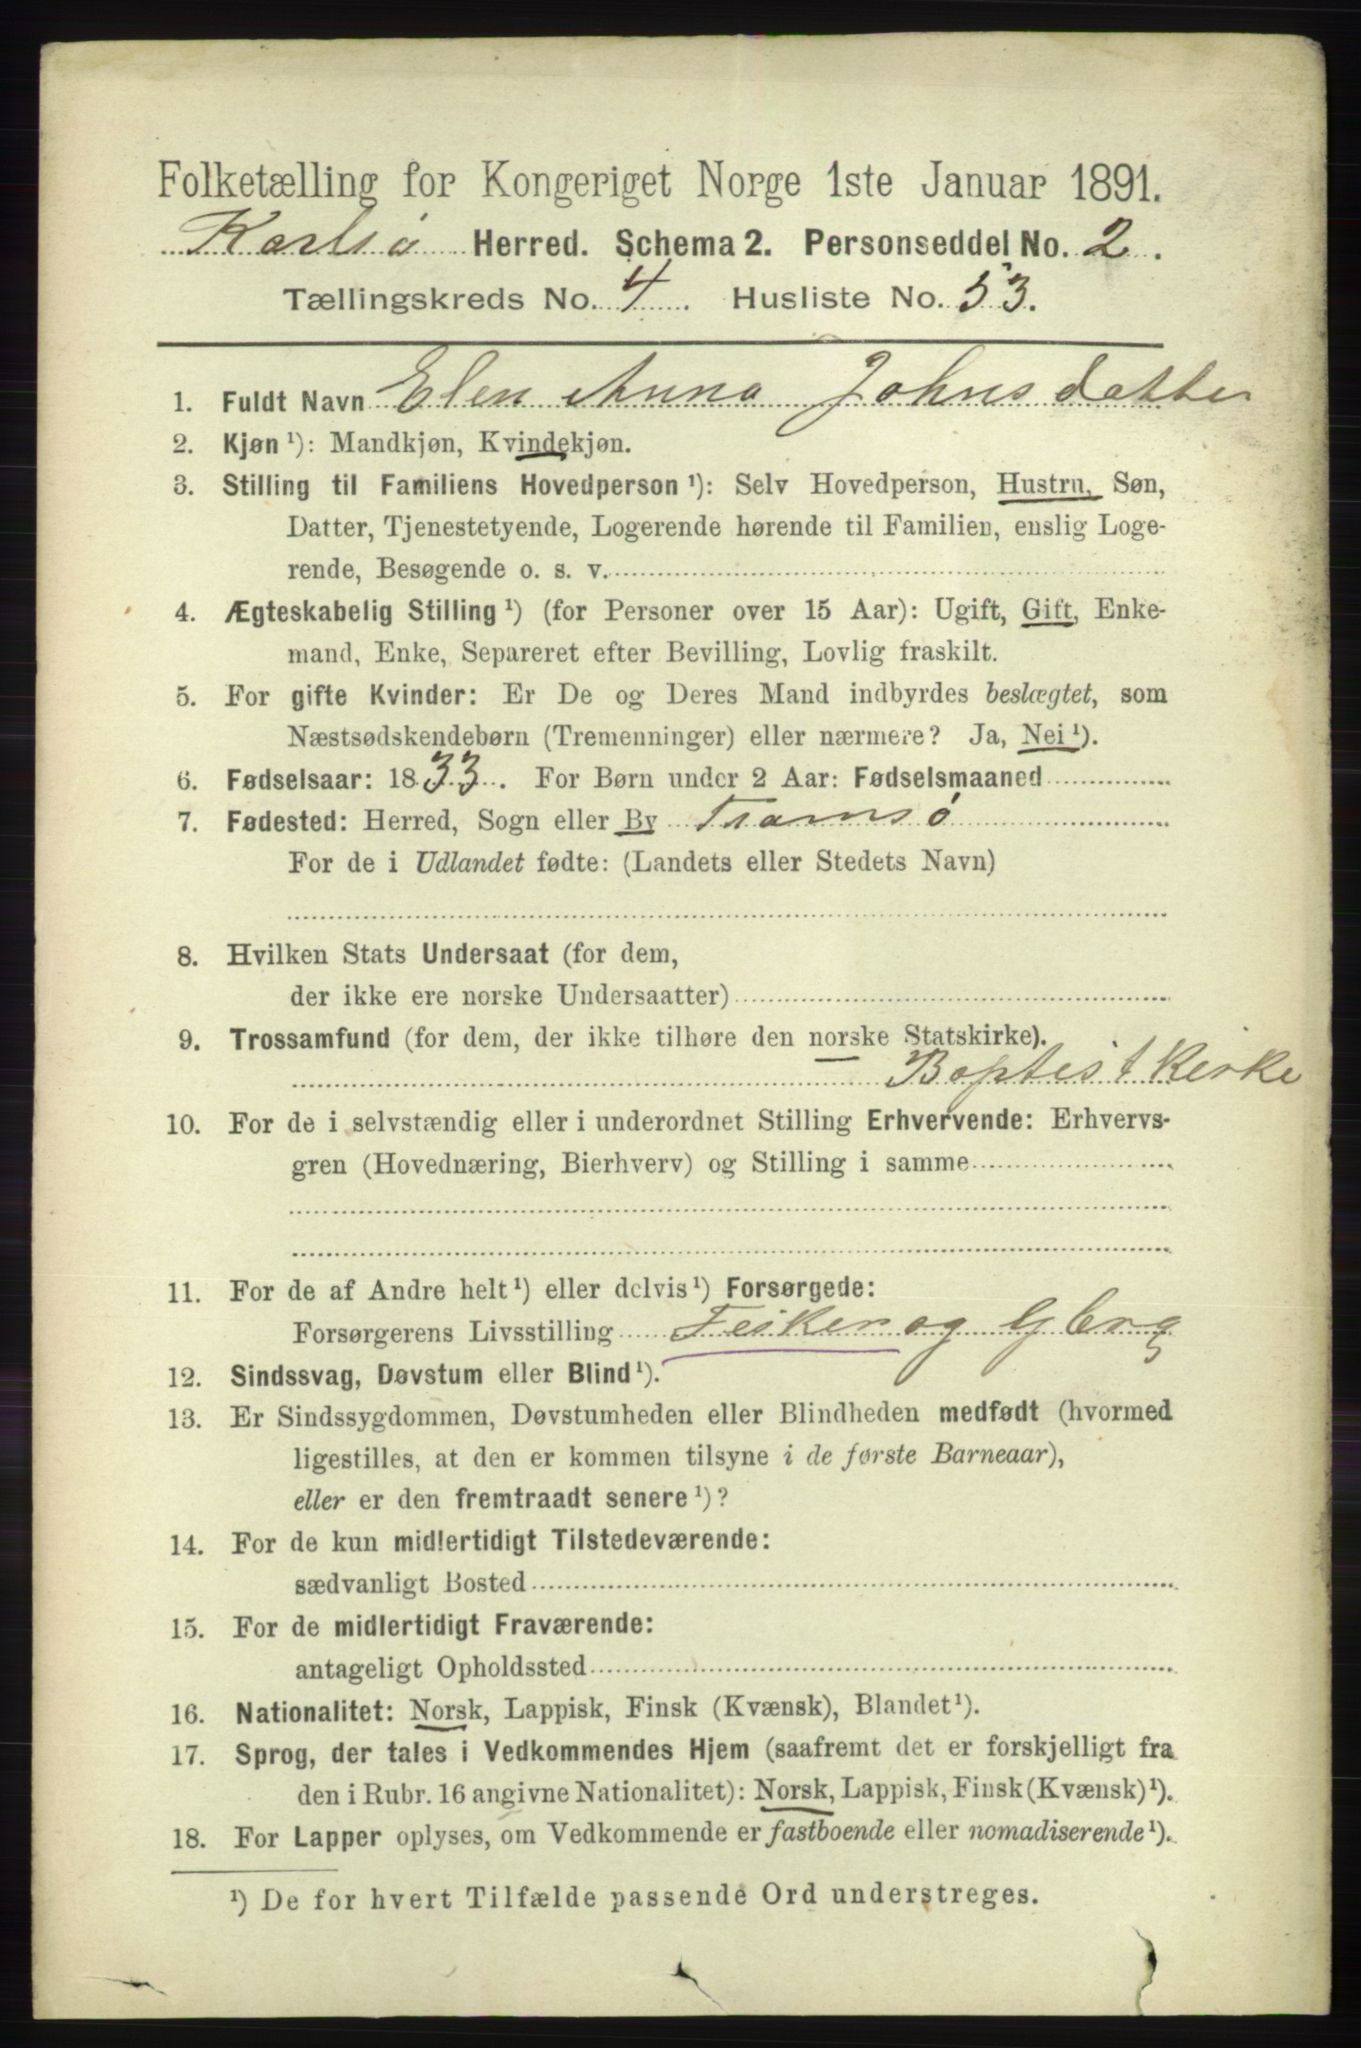 Folketælling for Kongeriget Norge 1ste Januar 1891.
Karlsø Herred. Schema 2. Personseddel No. 2.
Tællingskreds No. 4. Husliste No. 53.
1. Fuldt Navn Elen Anna Johnsdatter
2. Kjøn ¹): Mandkjøn, Kvindekjøn.
3. Stilling til Familiens Hovedperson ¹): Selv Hovedperson, Hustru, Søn,
Datter, Tjenestetyende, Logerende hørende til Familien, enslig Loge-
rende, Besøgende o. s. v.
4. Ægteskabelig Stilling ¹) (for Personer over 15 Aar): Ugift, Gift, Enke-
mand, Enke, Separeret efter Bevilling, Lovlig fraskilt.
5. For gifte Kvinder: Er De og Deres Mand indbyrdes beslægtet, som
Næstsødskendebørn (Tremenninger) eller nærmere? Ja, Nei ¹).
6. Fødselsaar: 1833. For Børn under 2 Aar: Fødselsmaaned
7. Fødested: Herred, Sogn eller By Tromsø
For de i Udlandet fødte: (Landets eller Stedets Navn)
8. Hvilken Stats Undersaat (for dem,
der ikke ere norske Undersaatter)
9. Trossamfund (for dem, der ikke tilhøre den norske Statskirke).
— Baptist Kirke
10. For de i selvstændig eller i underordnet Stilling Erhvervende: Erhvervs-
gren (Hovednæring, Bierhverv) og Stilling i samme
11. For de af Andre helt ¹) eller delvis ¹) Forsørgede:
Forsørgerens Livsstilling Fisker og Gbrg
12. Sindssvag, Døvstum eller Blind ¹).
13. Er Sindssygdommen, Døvstumheden eller Blindheden medfødt (hvormed
ligestilles, at den er kommen tilsyne i de første Barneaar),
eller er den fremtraadt senere ¹)?
14. For de kun midlertidigt Tilstedeværende:
sædvanligt Bosted
15. For de midlertidigt Fraværende:
antageligt Opholdssted
16. Nationalitet: Norsk, Lappisk, Finsk (Kvænsk), Blandet ¹).
17. Sprog, der tales i Vedkommendes Hjem (saafremt det er forskjelligt fra
den i Rubr. 16 angivne Nationalitet): Norsk, Lappisk, Finsk (Kvænsk) ¹).
18. For Lapper oplyses, om Vedkommende er fastboende eller nomadiserende ¹).
¹) De for hvert Tilfælde passende Ord understreges.